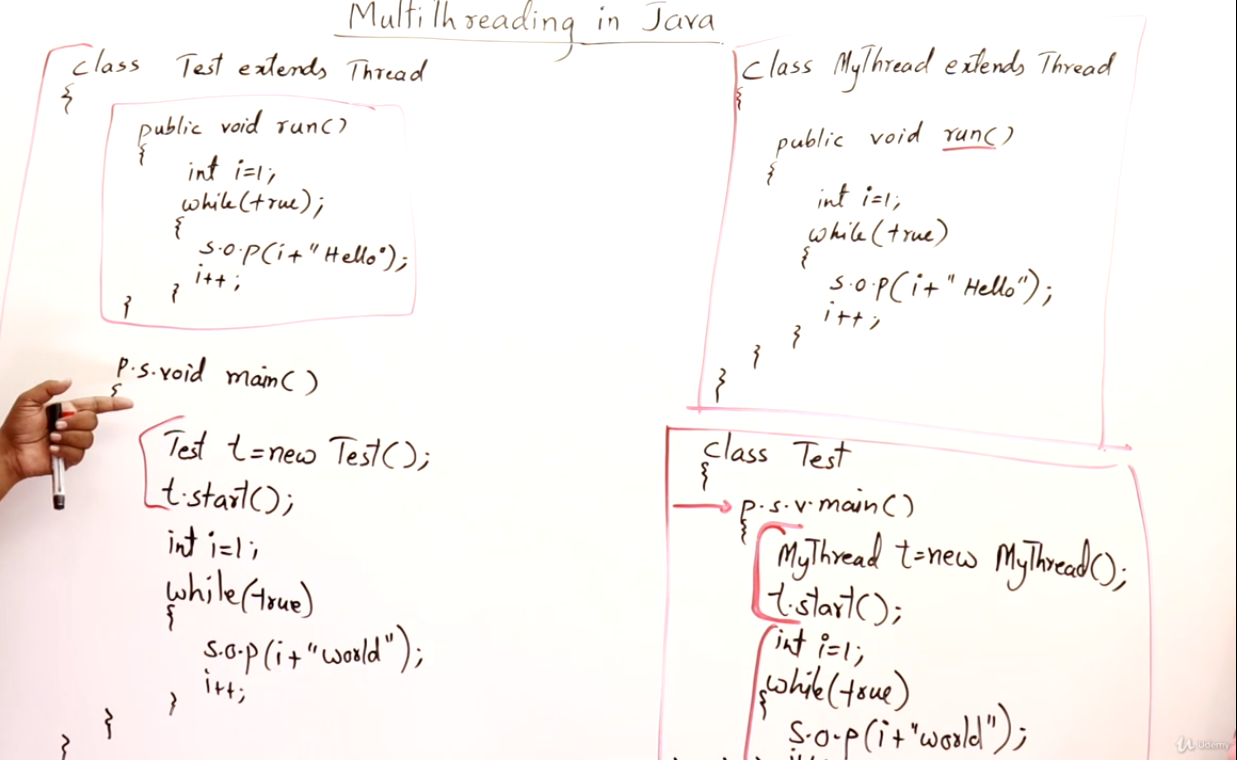 Multithreading in Java
class Test extends Thread
{
public void run()
{
int i=1;
while(true);
{
s.o.p(i+"Hello");
i++;
}
}
p.s.void main()
{
Test t=new Test();
t.start();
int i=1;
while(true)
{
s.o.p(i+"world");
i++;
}
}
}
class MyThread extends Thread
{
public void run()
{
int i=1;
while(true)
{
s.o.p(i+"Hello");
i++;
}
}
}
class Test
{
p.s.v.main()
{
MyThread t=new MyThread();
t.start();
int i=1;
while(true)
{
s.o.p(i+"world");
Udemy